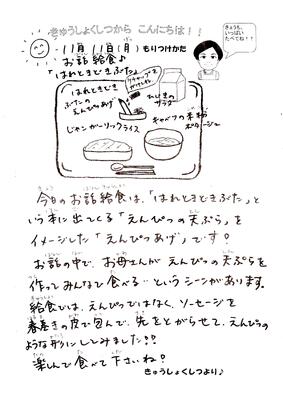 きゅうしょくしつから こんにちは!!
きょうも、
いっぱい
たべてね!!
11月 11日(月) もりつけかた
お話給食♪
「はれときどきぶた」
はれときどき
ぶたの
えんぴつあげ
ケチャップを
かけてね
ひじきの
サラダ
じゃンガーリックライス
キャベツの米粉
ポタージュ
今日のお話給食は、「はれときどきぶた」と
いう本に出てくる「えんぴつの天ぷら」を
イメージした「えんぴつあげ」です!
お話の中で、お母さんが えんぴつの天ぷらを
作ってみんなで食べる…というシーンがあります。
給食では、えんぴつではなく、ソーセージを
春巻きの皮で包んで、先をとがらせて、えんぴつの
ような形にしてみました!!
楽しんで食べて下さいね!
きゅうしょくしつより♪